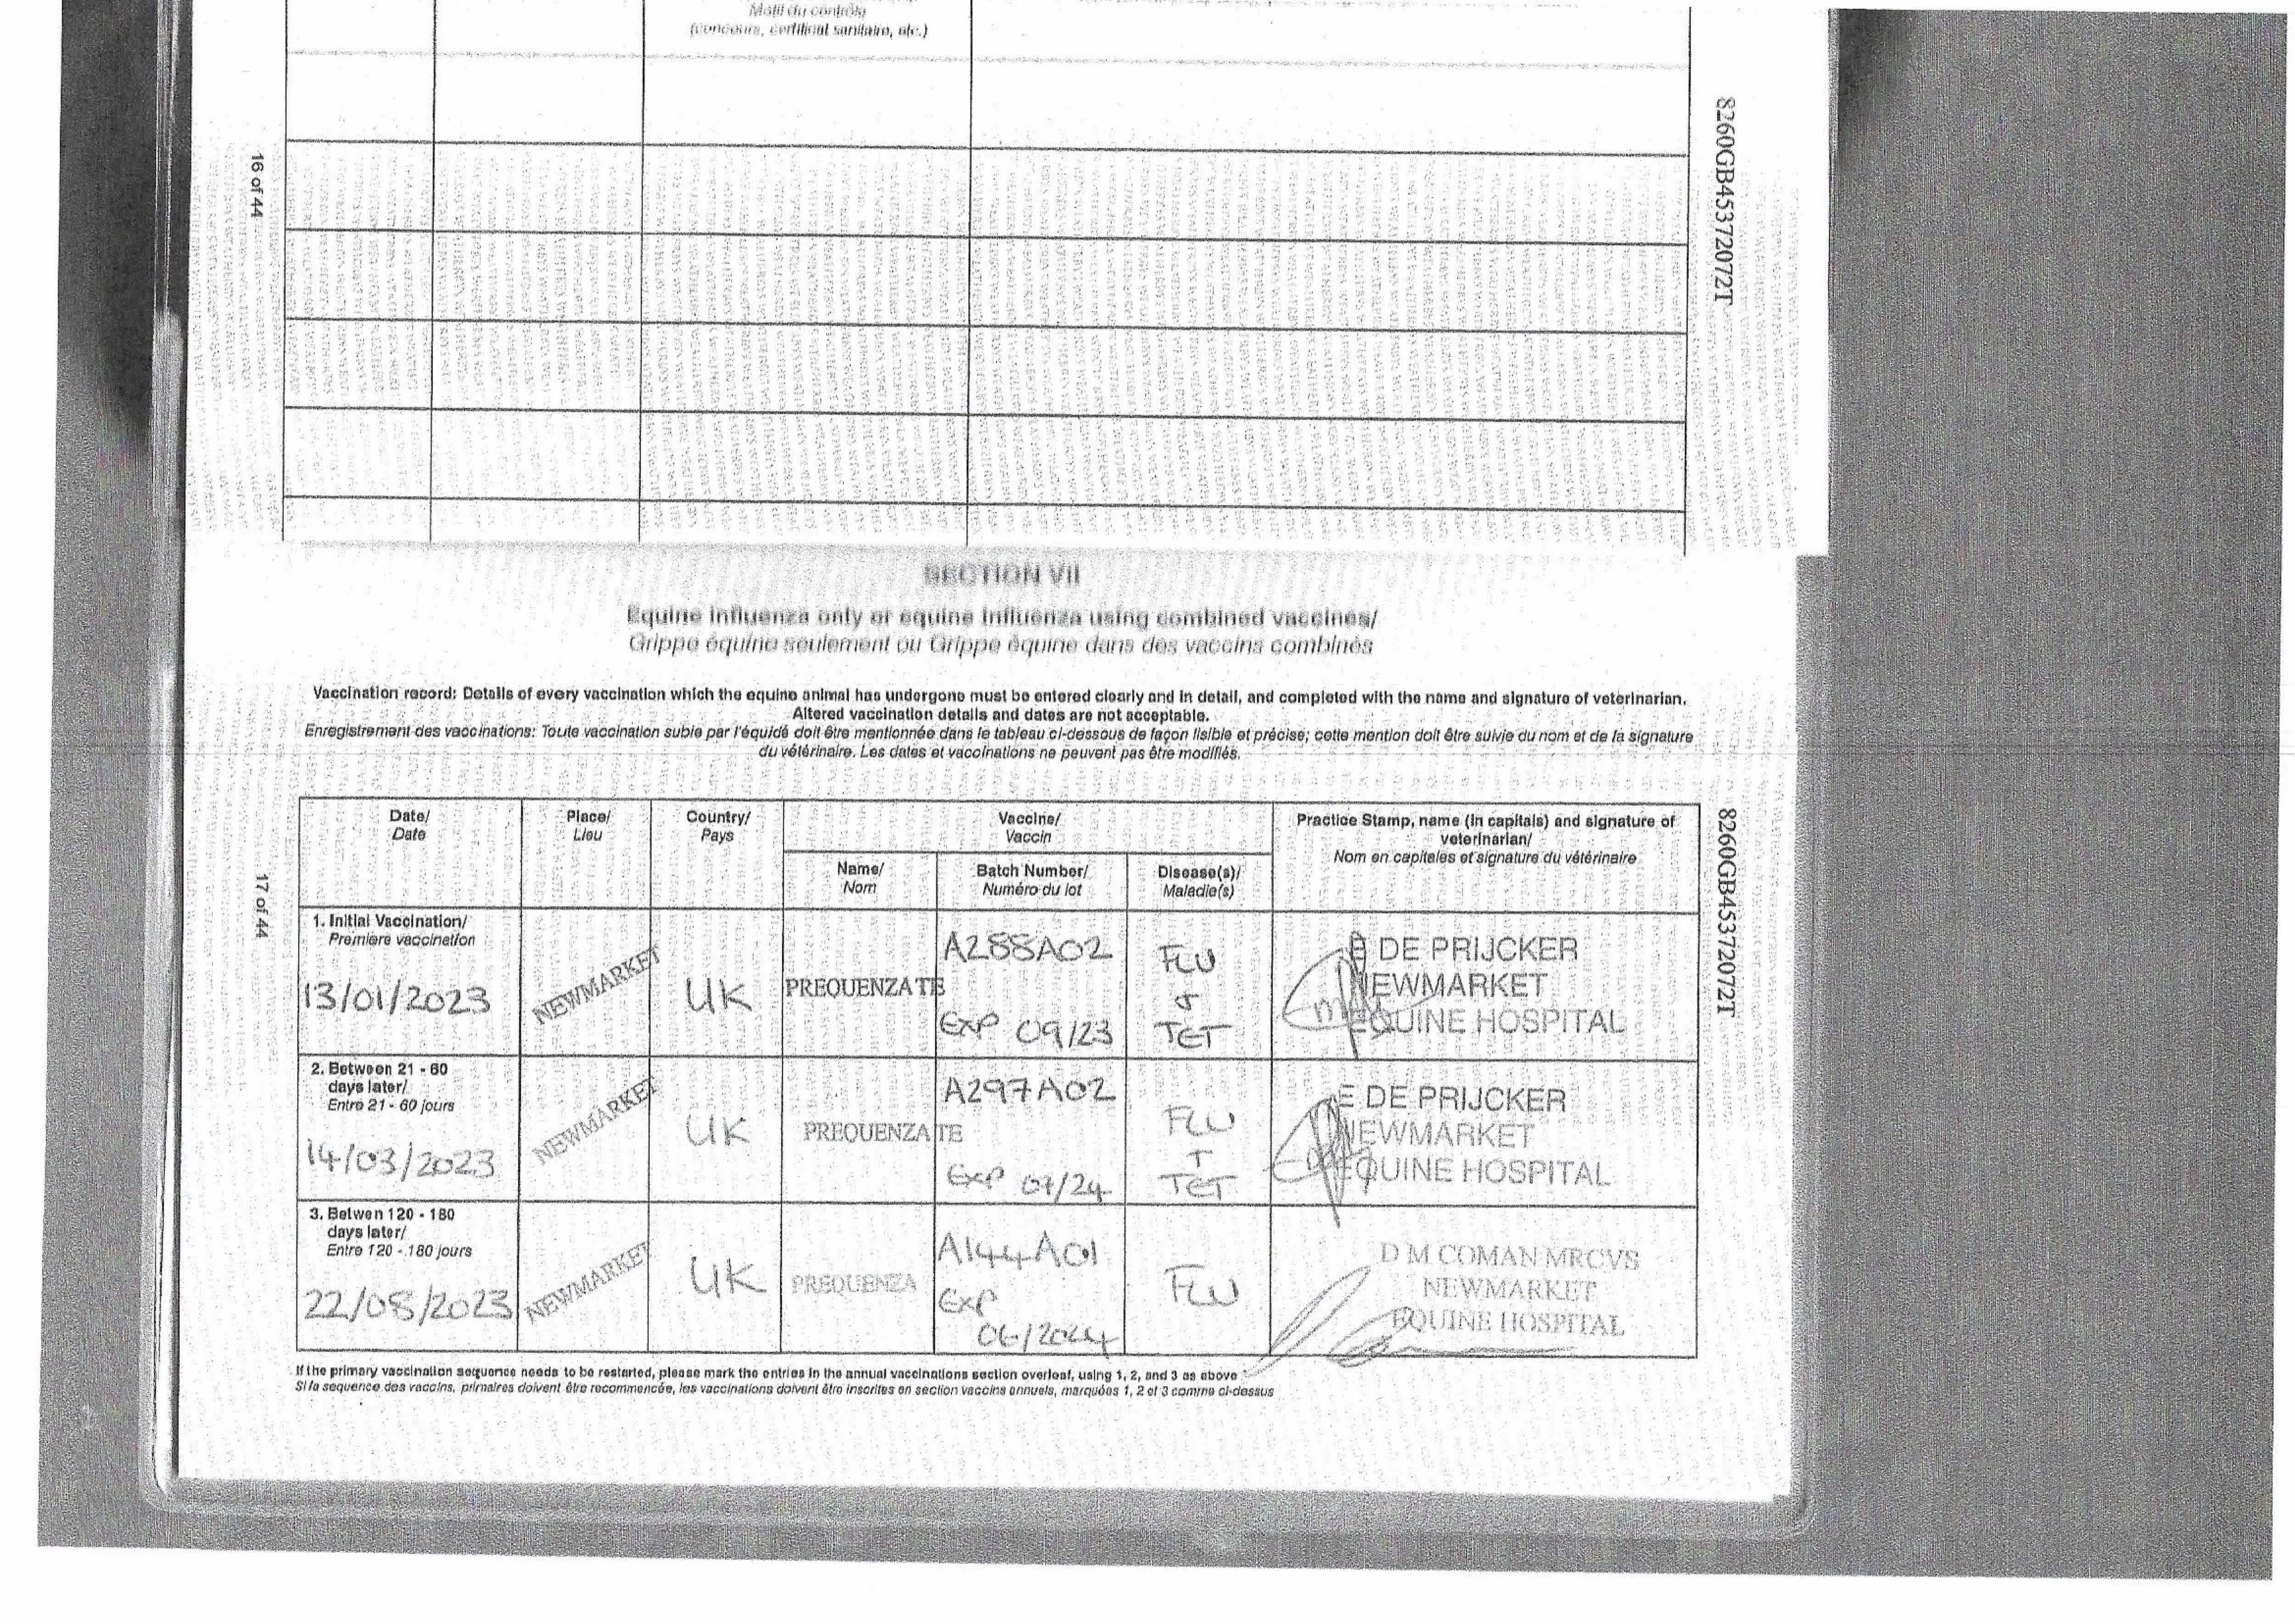 Motif du contrôle
(concours, certificat sanitaire, etc.)
16 of 44
8260GB45372072T
SECTION VII
Equine influenza only or equine influenza using combined vaccines/
Grippe équine seulement ou Grippe équine dans des vaccins combinés
Vaccination record: Details of every vaccination which the equine animal has undergone must be entered clearly and in detail, and completed with the name and signature of veterinarian.
Altered vaccination details and dates are not acceptable.
Enregistrement des vaccinations: Toute vaccination subie par l'équidé doit être mentionnée dans le tableau ci-dessous de façon lisible et précise; cette mention doit être suivie du nom et de la signature
du vétérinaire. Les dates et vaccinations ne peuvent pas être modifiés.
Date/
Date
Place/
Lieu
Country/
Pays
Vaccine/
Vaccin
Practice Stamp, name (in capitals) and signature of
veterinarian/
Nom en capitales et signature du vétérinaire
Name/
Nom
Batch Number/
Numéro du lot
Disease(s)/
Maladie(s)
1. Initial Vaccination/
Premiere vaccination
13/01/2023
NEWMARKET
UK
PREQUENZA TE
A288A02
EXP 09/23
FLU
&
TET
E DE PRIJCKER
NEWMARKET
EQUINE HOSPITAL
2. Between 21 - 60
days later/
Entre 21 - 60 jours
14/03/2023
NEWMARKET
UK
PREQUENZA TE
A297A02
EXP 07/24
FLU
+
TET
E DE PRIJCKER
NEWMARKET
EQUINE HOSPITAL
3. Betwen 120 - 180
days later/
Entre 120 - 180 jours
22/08/2023
NEWMARKET
UK
PREQUENZA
A144A01
EXP
06/2024
FLU
D M COMAN MRCVS
NEWMARKET
EQUINE HOSPITAL
If the primary vaccination sequence needs to be restarted, please mark the entries in the annual vaccinations section overleaf, using 1, 2, and 3 as above
Si la sequence des vaccins, primaires doivent être recommencée, les vaccinations doivent être inscrites en section vaccins annuels, marquées 1, 2 et 3 comme ci-dessus
17 of 44
8260GB45372072T